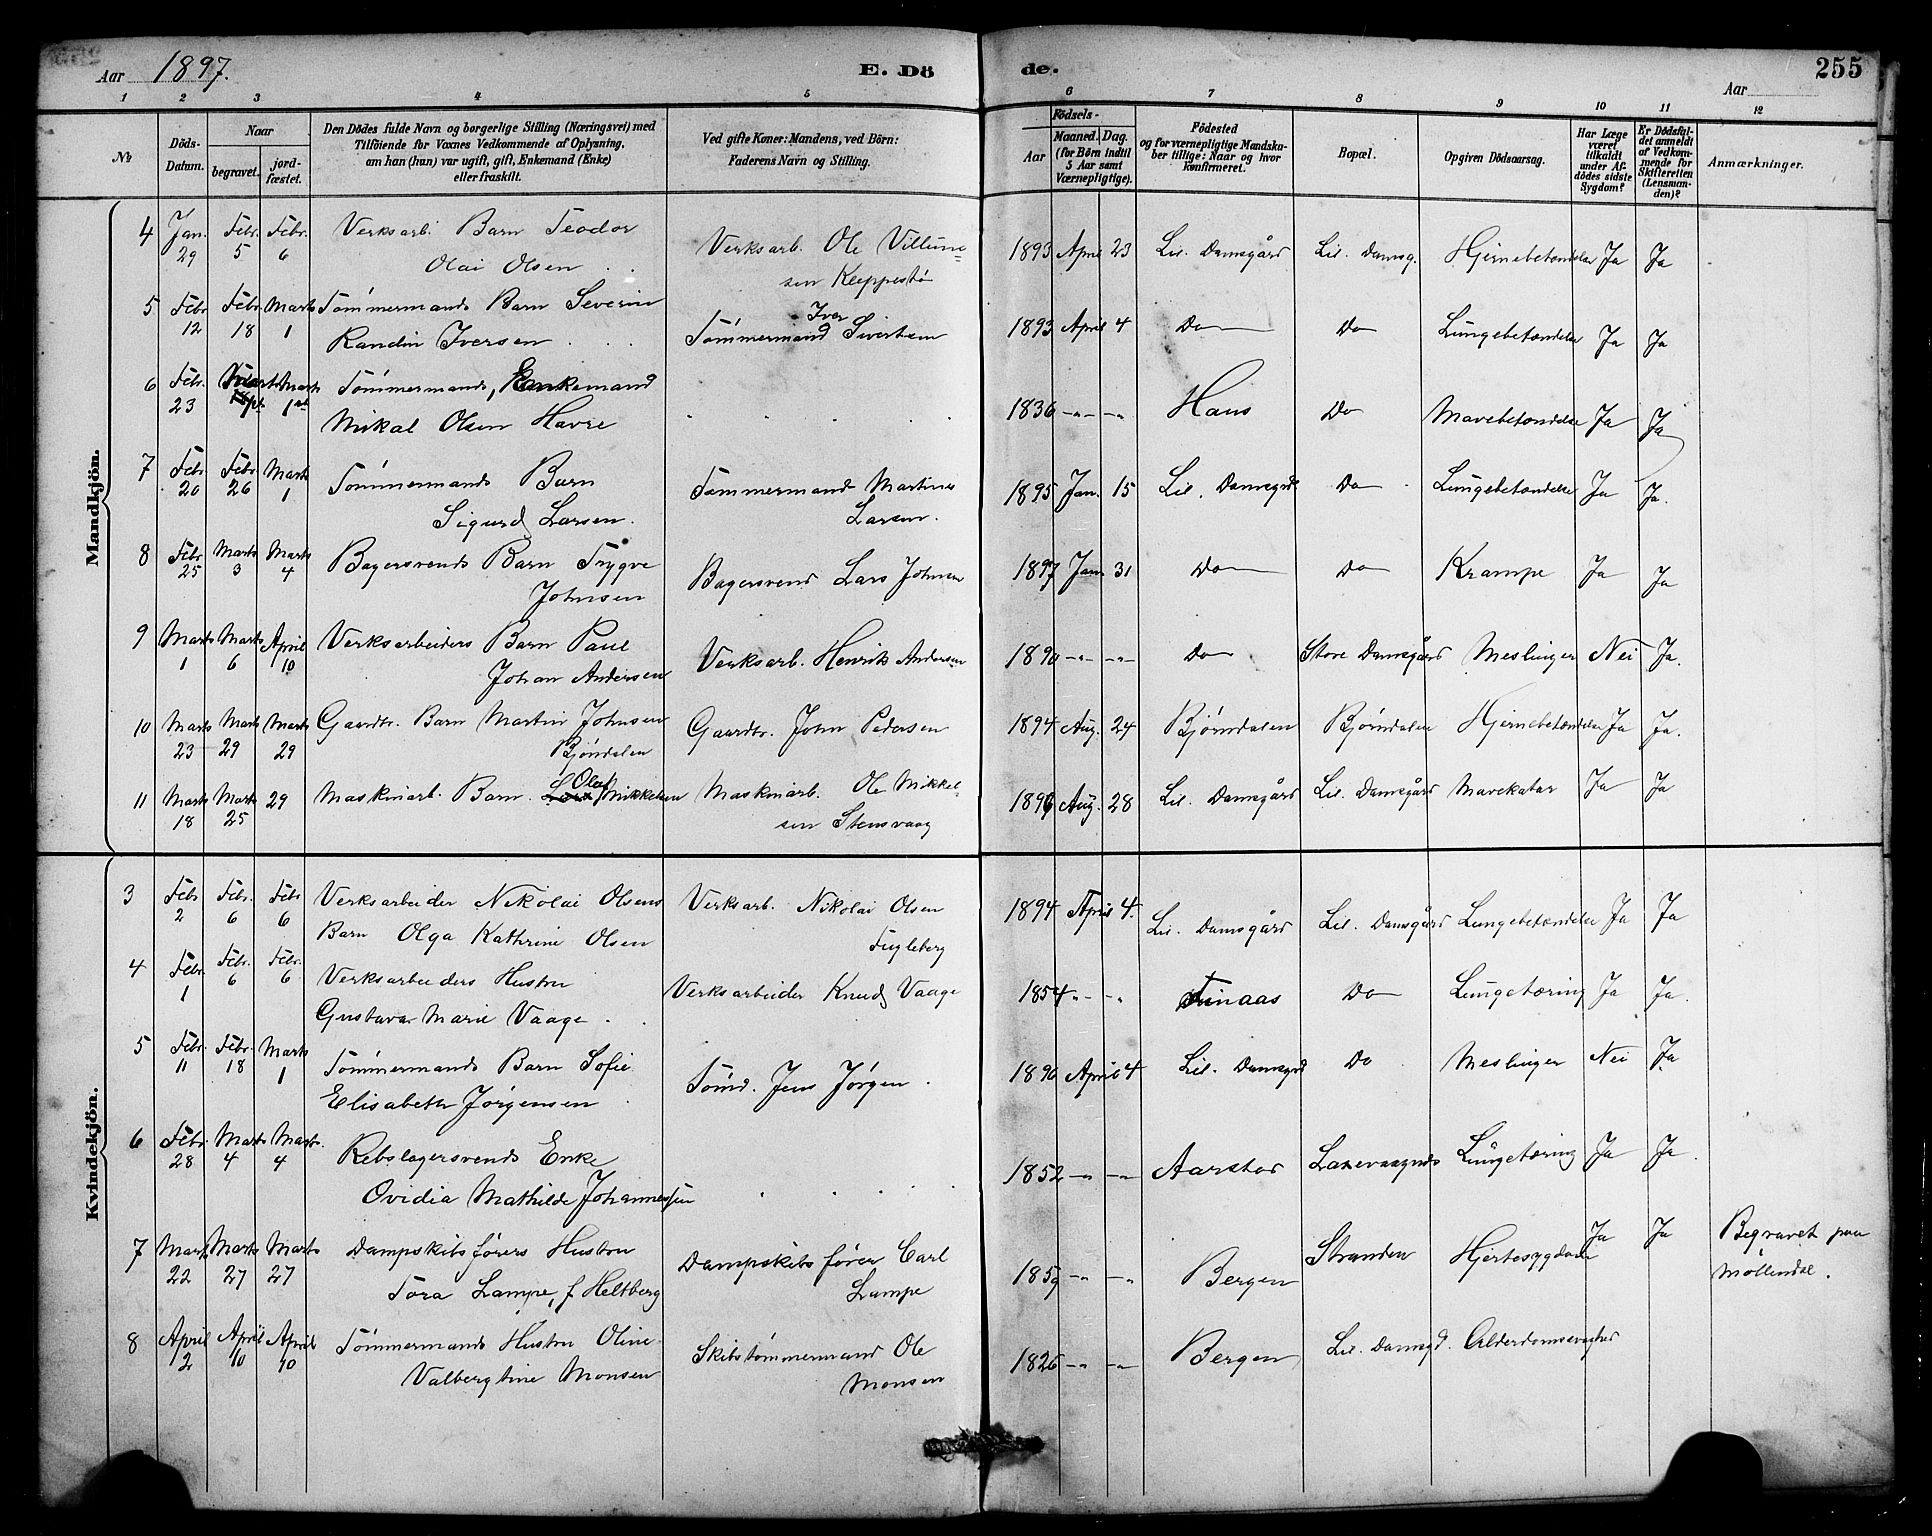 Aar 1897. E. Dö de. Aar 255
1 2 3 4 5 6 7 8 9 10 11 12
№
Döds-Datum.
Naar
begravet. jordfæstet.
Den Dödes fulde Navn og borgerlige Stilling (Næringsvei) med
Tilföiende for Voxnes Vedkommende af Oplysning,
om han (hun) var ugift, gift, Enkemand (Enke)
eller fraskilt.
Ved gifte Koner: Mandens, ved Börn:
Faderens Navn og Stilling.
Födsels-
Aar Maaned. Dag.
(for Börn indtil
5 Aar samt
Værnepligtige).
Födested
og for værnepligtige Mandska-
ber tillige: Naar og hvor
konfirmeret.
Bopæl.
Opgiven Dödsaarsag.
Har Læge
været
tilkaldt
under Af-
dödes sidste
Sygdom?
Er Dödsfal-
det anmeldt
af Vedkom-
mende for
Skifteretten
(Lensman-
den)?
Anmærkninger.
Mandkjön.
4 Jan. 29 Febr. 5 Febr. 6 Verksarb. Barn Teodor Verksarb. Ole Villum- 1893 April 23 Lil. Damsgård Lil. Damsg. Hjernebetændelse Ja Ja
Olai Olsen sen Kleppestø
5 Febr 12 Febr. 18 Marts 1 Tømmermands Barn Severin Tømmermand Iver Sivertsen 1893 April 4 Do Do Lungebetændelse Ja Ja
Randin Iversen
6 Febr. 23 Marts 1st Tømmermands, Enkemand 1836 -„- -„- Haus Do Mavebetændelse Ja Ja
Mikal Olsen Havre
7 Febr 20 Febr 26 Marts 1 Tømmermands Barn Tømmermand Martinus 1895 Jan. 15 Lil. Damsgrd Do Lungebetændelse Ja Ja.
Sigurd Larsen. Larsen.
8 Febr 25 Marts 3 Marts 4 Bagersvends Barn Trygve Bagersvend Lars Johnsen 1897 Jan 31 Do Do Krampe Ja Ja
Johnsen
9 Marts 1 Marts 6 April 10 Verksarbeiders Barn Paul Verksarb. Henrik Andersen 1890 -„- -„- Do Store Damsgård Meslinger Nei Ja.
Johan Andersen
10 Marts 23 Marts 29 Marts 29 Gaardbr. Barn Martin Johnsen Gaardbr. John Pedersen 1894 Aug. 24 Bjørndalen Bjørndalen Hjernebetændelse Ja Ja.
Bjøndalen
11 Marts 18 Marts 25 29 Maskinarb. Barn. Olaf Mikkelsen Maskinarb. Ole Mikkel- 1896 Aug. 28 Lil. Damsgård Lil. Damsgård Mavekatar Ja Ja
sen Stensvaag
Kvindekjön.
3 Febr 2 Febr. 6 Febr 6 Verksarbeider Nikolai Olsens Verksarb. Nikolai Olsen 1894 April 4. Lil. Damsgård Lil. Damsgård Lungebetændelse Ja Ja
Barn Olga Kathrine Olsen Fugleberg
4 Febr. 1 Febr. 6 Febr. 6 Verksarbeiders Hustru Verksarbeider Knud Vaage 1854 „- -„ Finaas Do Lungetæring Ja Ja.
Gustava Marie Vaage
5 Febr. 11 Febr. 18 Marts 1 Tømmermands Barn Sofie Tømd. Jens Jørgen. 1890 April 4 Lil. Damsgrd Do Meslinger Nei Ja
Elisabeth Jørgensen
6 Febr 28 Marts 4 Marts 4 Rebslagersvends Enke 1852 -„- -„- Aarstad Laxevaagnæs Lungetæring Ja Ja
Ovidia Mathilde Johannessen
7 Marts 22 Marts 27 Marts 27 Dampskibsførers Hustru Dampskibsfører Carl 1859 -„- -„- Bergen Stranden Hjertesygdom Ja Ja Begravet paa
Tora Lampe, f Heltberg Lampe Møllendal.
8 April 2 April 10 April 10 Tømmermands Hustru Oline Skibstømmermand Ole 1826 -„- -„- Bergen Lil. Damsgd. Alderdomssvaghed
Valbergtine Monsen Monsen